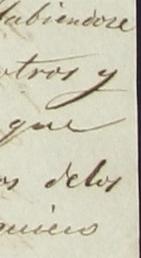 Habiendose
otros y
que
os delos
quiero